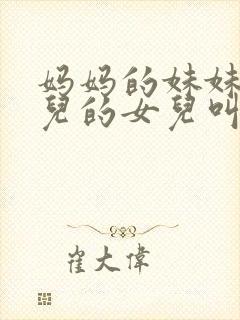 妈妈的妹妹
兒的女兒叫
崔大偉